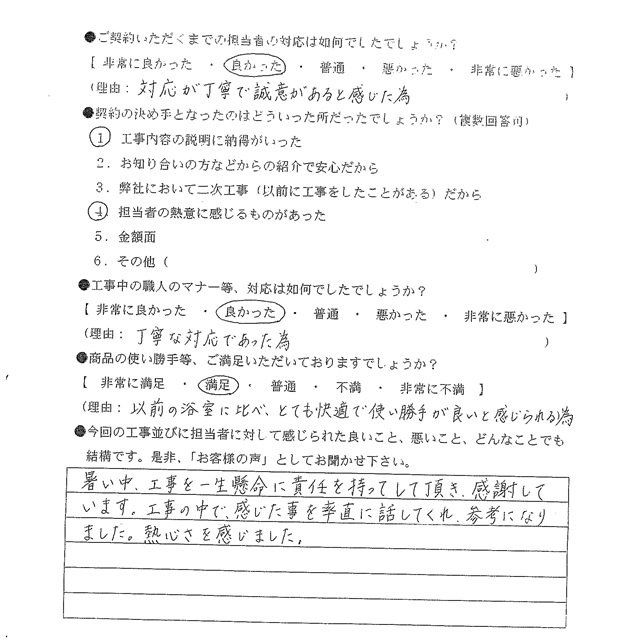 ●ご契約いただくまでの担当者の対応は如何でしたでしょうか？
【 非常に良かった ・ 良かった ・ 普通 ・ 悪かった ・ 非常に悪かった 】
(理由： 対応が丁寧で誠意があると感じた為 )
●契約の決め手となったのはどういった所だったでしょうか？（複数回答可）
1. 工事内容の説明に納得がいった
2. お知り合いの方などからの紹介で安心だから
3. 弊社において二次工事（以前に工事をしたことがある）だから
4. 担当者の熱意に感じるものがあった
5. 金額面
6. その他（ ）
●工事中の職人のマナー等、対応は如何でしたでしょうか？
【 非常に良かった ・ 良かった ・ 普通 ・ 悪かった ・ 非常に悪かった 】
(理由： 丁寧な対応であった為 )
●商品の使い勝手等、ご満足いただいておりますでしょうか？
【 非常に満足 ・ 満足 ・ 普通 ・ 不満 ・ 非常に不満 】
(理由： 以前の浴室に比べ、とても快適で使い勝手が良いと感じられる)為
●今回の工事並びに担当者に対して感じられた良いこと、悪いこと、どんなことでも
結構です。是非、「お客様の声」としてお聞かせ下さい。
暑い中、工事を一生懸命に責任を持ってして頂き、感謝して
います。工事の中で、感じた事を率直に話してくれ、参考になり
ました。熱心さを感じました。